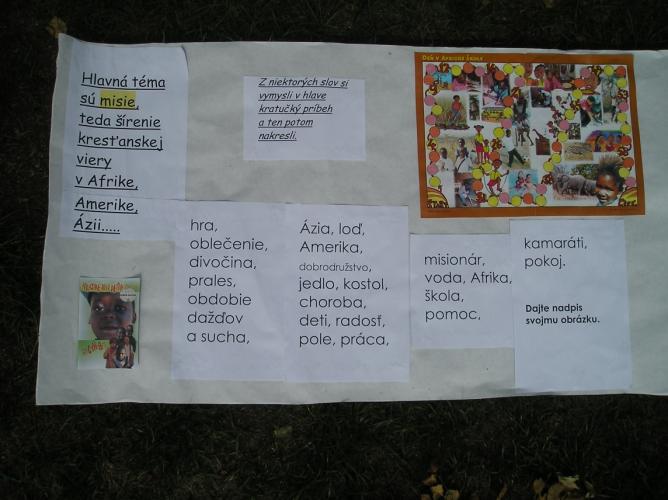 Hlavná téma
sú misie,
teda šírenie
kresťanskej
viery
v Afrike,
Amerike,
Ázii.....
Z niektorých slov si
vymysli v hlave
kratučký príbeh
a ten potom
nakresli.
hra,
oblečenie,
divočina,
prales,
obdobie
dažďov
a sucha,
Ázia, loď,
Amerika,
dobrodružstvo,
jedlo, kostol,
choroba,
deti, radosť,
pole, práca,
misionár,
voda, Afrika,
škola,
pomoc,
kamaráti,
pokoj.
Dajte nadpis
svojmu obrázku.